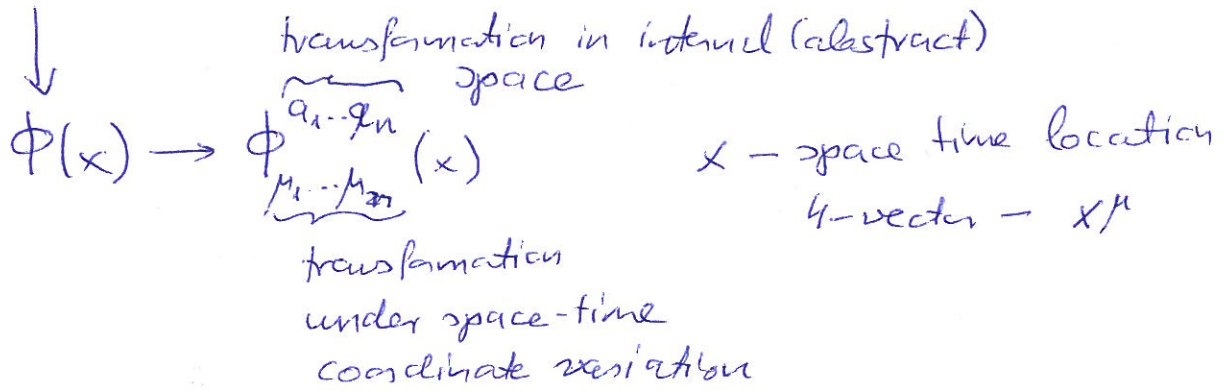 transformation in internal (abstract)
space
ϕ(x) → ϕ^{a₁...aₙ}_{μ₁...μₘ}(x)
x - space time location
4-vector - x^μ
transformation
under space-time
coordinate variation